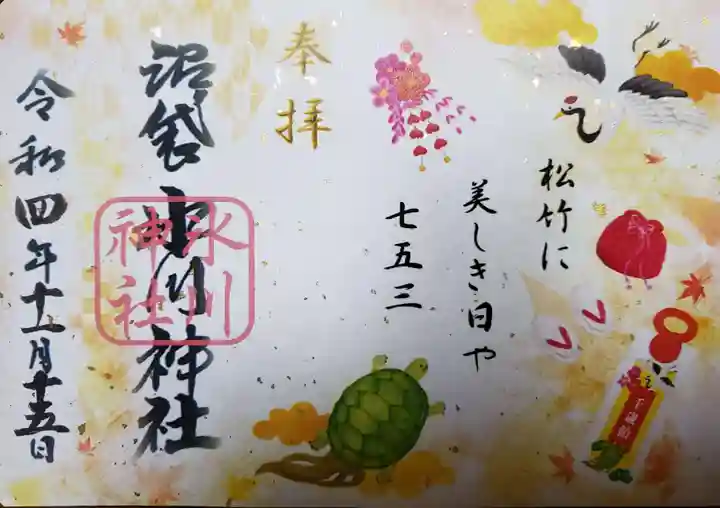 松竹に
美しき日や
七五三
千歳飴
奉拝
沼袋氷川神社
氷川
神社
令和四年十一月十五日